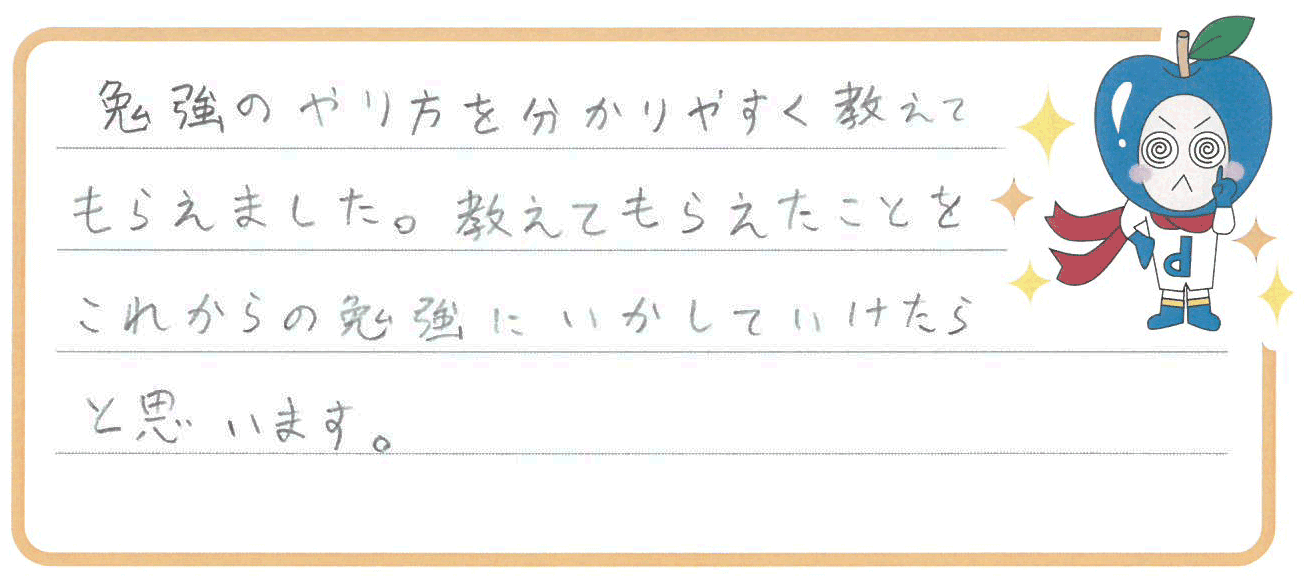 勉強のやり方を分かりやすく教えて
もらえました。教えてもらえたことを
これからの勉強にいかしていけたら
と思います。